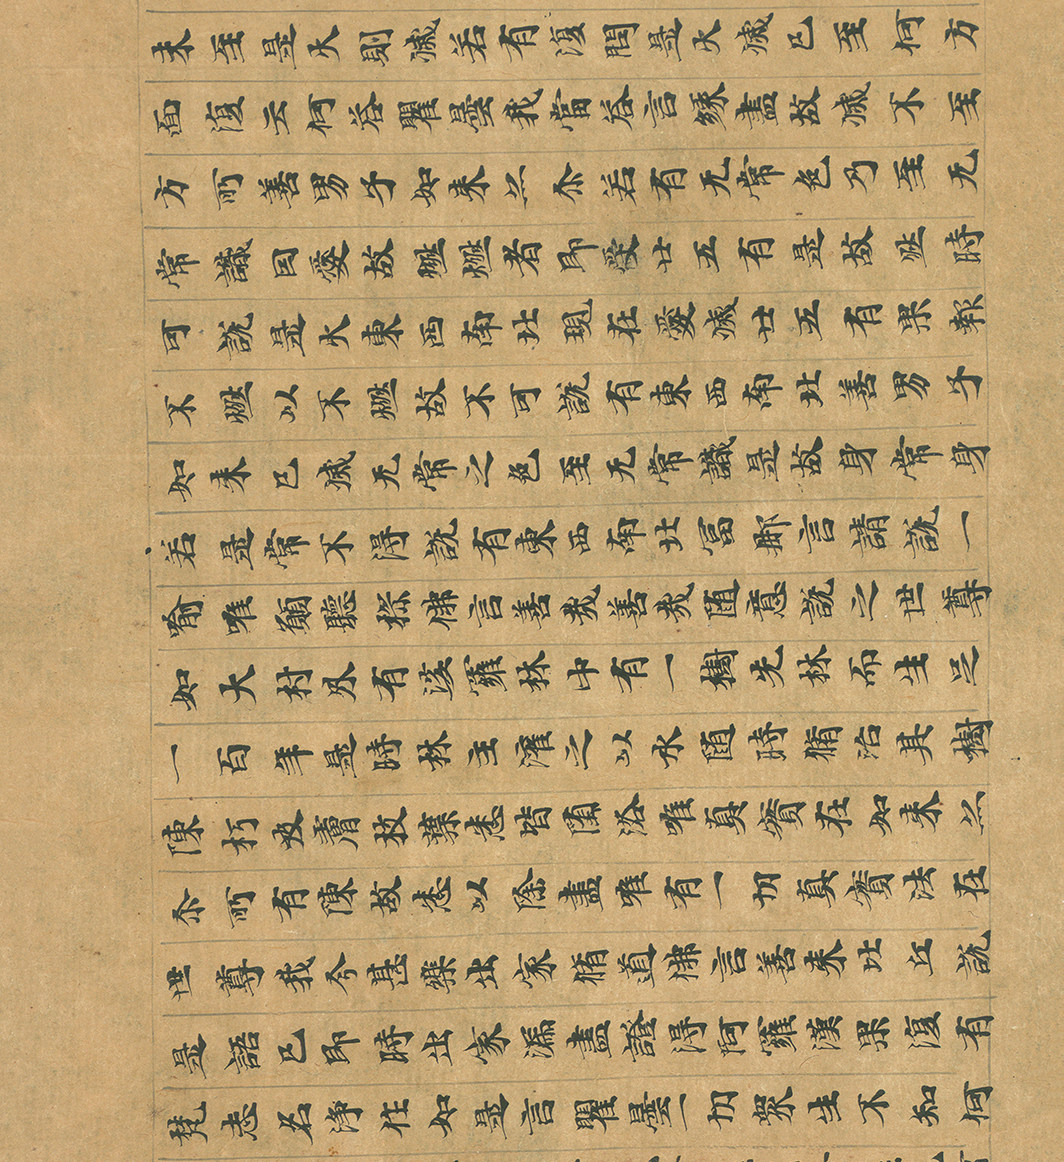 未至是火則滅若有復問是火滅已至何方
面復云何荅瞿曇我當荅言緣盡故滅不至
方所善男子如来亦尒若有无常色乃至无
常識因愛故燃燃者即受廿五有是故燃時
可說是火東西南北現在愛滅廿五有果報
不燃以不燃故不可說有東西南北善男子
如来已滅无常之色至无常識是故身常身
若是常不得說有東西南北富那言請說一
喻唯願聽採佛言善哉善哉隨意說之世尊
如大村外有娑羅林中有一樹先林而生足
一百年是時林主灌之以水隨時脩治其樹
陳朽皮膚枝葉悉皆墮落唯真實在如来亦
尒所有陳故悉以除盡唯有一切真實法在
世尊我今甚樂出家脩道佛言善来比丘說
是語已即時出家漏盡證得阿羅漢果復有
梵志名淨住如是言瞿曇一切眾生不知何